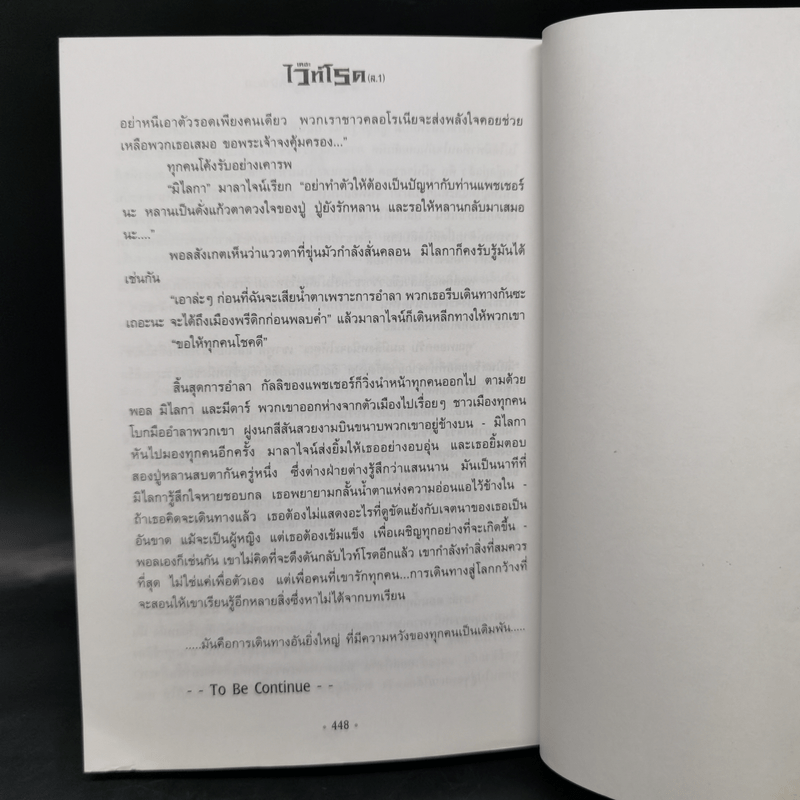 เดชา
ไว๊ท์โรค (ล.1)
อย่าหนีเอาตัวรอดเพียงคนเดียว พวกเราชาวคลอโรเนียจะส่งพลังใจคอยช่วย
เหลือพวกเธอเสมอ ขอพระเจ้าจงคุ้มครอง..."
ทุกคนโค้งรับอย่างเคารพ
"มิไลกา" มาลาไจน์เรียก "อย่าทำตัวให้ต้องเป็นปัญหากับท่านแพชเชอร์
นะ หลานเป็นดั่งแก้วตาดวงใจของปู่ ปู่ยังรักหลาน และรอให้หลานกลับมาเสมอ
นะ...."
พอลสังเกตเห็นว่าแววตาที่ขุ่นมัวกำลังสั่นคลอน มิไลกาก็คงรับรู้มันได้
เช่นกัน
"เอาล่ะๆ ก่อนที่ฉันจะเสียน้ำตาเพราะการอำลา พวกเธอรีบเดินทางกันซะ
เถอะนะ จะได้ถึงเมืองพรีดิกก่อนพลบค่ำ" แล้วมาลาไจน์ก็เดินหลีกทางให้พวกเขา
"ขอให้ทุกคนโชคดี"
สิ้นสุดการอำลา กัลลิของแพชเชอร์ก็วิ่งนำหน้าทุกคนออกไป ตามด้วย
พอล มิไลกา และมีดาร์ พวกเขาออกห่างจากตัวเมืองไปเรื่อยๆ ชาวเมืองทุกคน
โบกมืออำลาพวกเขา ฝูงนกสีสันสวยงามบินขนาบพวกเขาอยู่ข้างบน - มิไลกา
หันไปมองทุกคนอีกครั้ง มาลาไจน์ส่งยิ้มให้เธออย่างอบอุ่น และเธอยิ้มตอบ
สองปู่หลานสบตากันครู่หนึ่ง ซึ่งต่างฝ่ายต่างรู้สึกว่าแสนนาน มันเป็นนาทีที่
มิไลการู้สึกใจหายชอบกล เธอพยายามกลั้นน้ำตาแห่งความอ่อนแอไว้ข้างใน -
ถ้าเธอคิดจะเดินทางแล้ว เธอต้องไม่แสดงอะไรที่ดูขัดแย้งกับเจตนาของเธอเป็น
อันขาด แม้จะเป็นผู้หญิง แต่เธอต้องเข้มแข็ง เพื่อเผชิญทุกอย่างที่จะเกิดขึ้น -
พอลเองก็เช่นกัน เขาไม่คิดที่จะดึงดันกลับไวท์โรคอีกแล้ว เขากำลังทำสิ่งที่สมควร
ที่สุด ไม่ใช่แค่เพื่อตัวเอง แต่เพื่อคนที่เขารักทุกคน...การเดินทางสู่โลกกว้างที่
จะสอนให้เขาเรียนรู้อีกหลายสิ่งซึ่งหาไม่ได้จากบทเรียน
.....มันคือการเดินทางอันยิ่งใหญ่ ที่มีความหวังของทุกคนเป็นเดิมพัน.....
- - To Be Continue - -
448